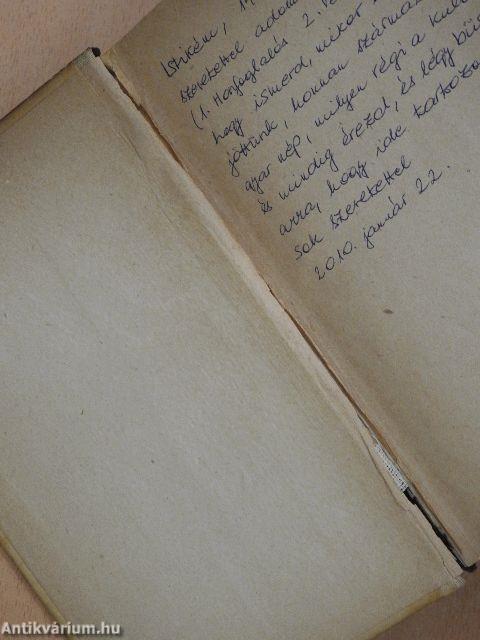 Istikém,
szeretettel adom
(1. Honfoglalás 2.
hogy ismerd, mikor
jöttünk, honnan szárma
gyar nép, milyen régi a kul
és mindig érezd, és légy büs
arra, hogy ide tartozo
sok szeretettel
2010. január 22.
Antikvárium.hu